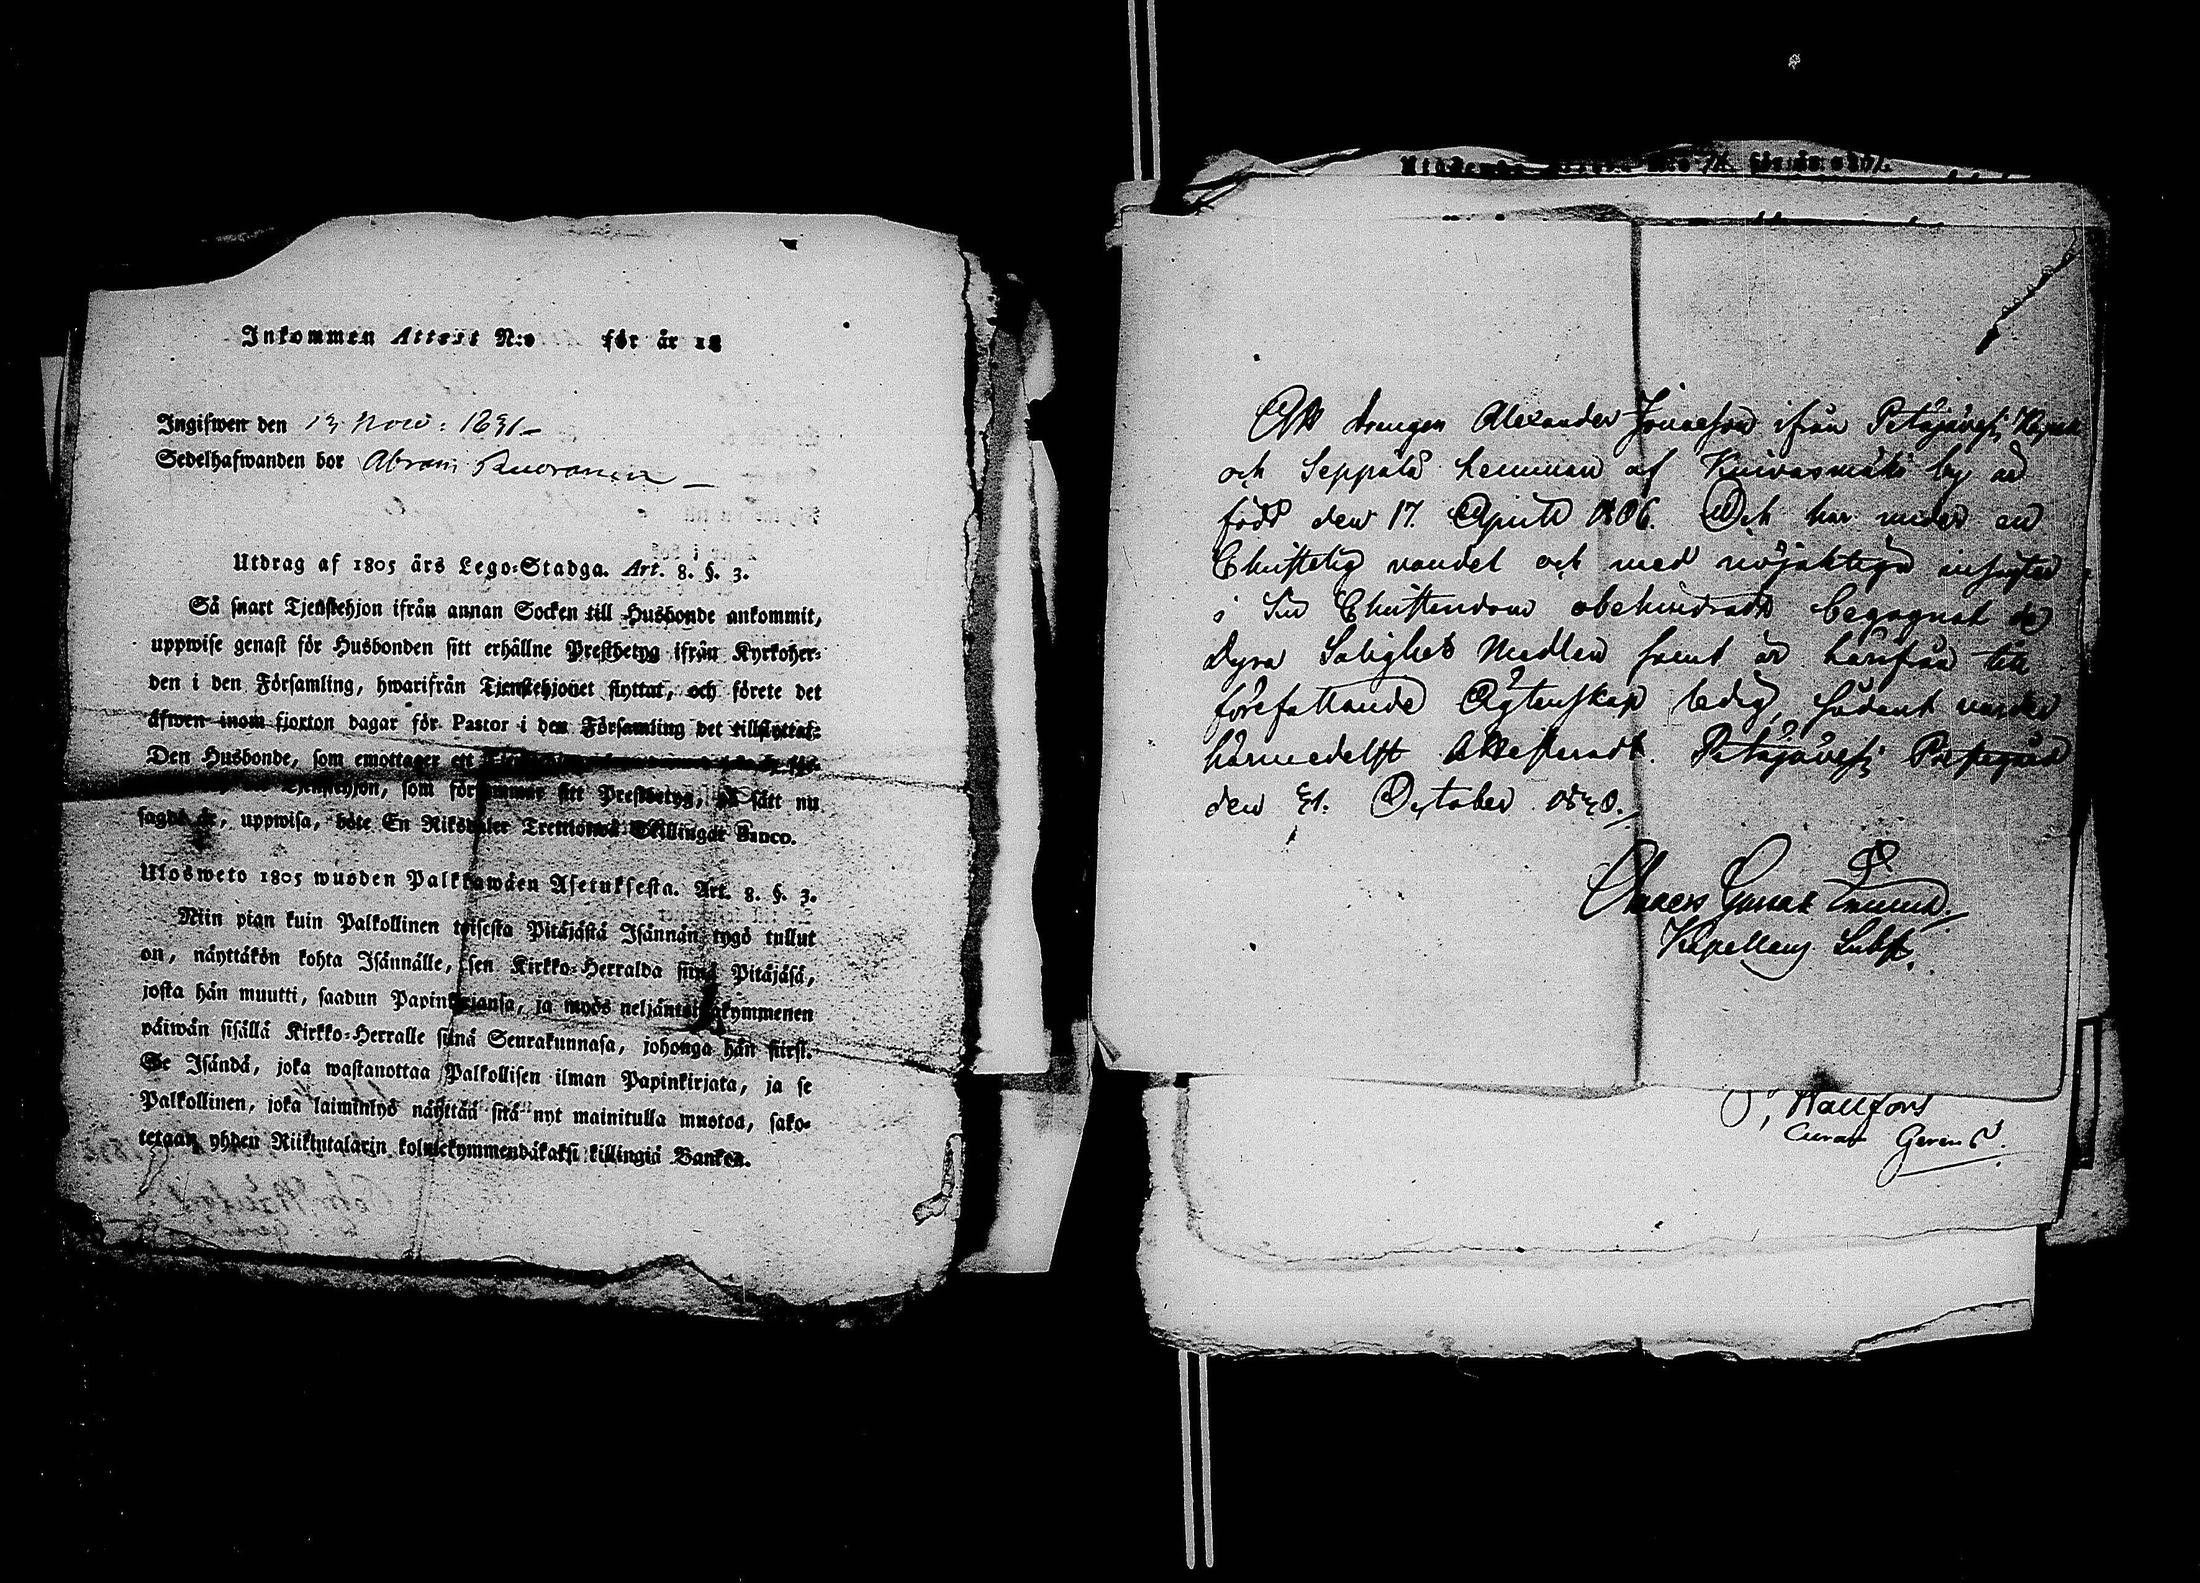 Inkommen Attest N:o för år 18
Ingifwen den 13 Nov: 1831
Sedelhafwanden bor Abram
Utdrag af 1805 års Lego-Stadga. Art. 8. §. 3.
Så snart Tjenstehjon ifrån annan Socken till Husbonde ankommit,
uppwise genast för Husbonden sitt erhållne Prestbetyg ifrån Kyrkoher-
den i den Församling, hwarifrån Tjenstehjonet flyttat, och förete det
äfwen inom fjorton dagar för Pastor i den Församling det tillflyttat.
Den Husbonde, som emottager ett
Tjenstehjon, som försummar sitt Prestbetyg, på sätt nu
sagdt är, uppwisa, böte En Riksdaler Trettiotwå Skillingar Banco.
Ulosweto 1805 wuoden Palkkawäen Asetuksesta. Art. 8. §. 3.
Niin pian kuin Palkollinen toisesta Pitäjästä Isännän tygö tullut
on, näyttäkön kohta Isännälle, sen Kirkko-Herralda siinä Pitäjäsä,
josta hän muutti, saadun Papinkirjansa, ja myös neljäntoistakymmenen
päiwän sisällä Kirkko-Herralle siinä Seurakunnasa, johonga hän siirsi.
Se Isändä, joka wastanottaa Palkollisen ilman Papinkirjata, ja se
Palkollinen, joka laiminlyö näyttää sitä nyt mainitulla muotoa, sako-
tetaan yhden Riikintalarin kolmekymmendäkaksi killingiä Bankoa.
Att drengen Alexander Jonaeson ifrån Petäjävesi Kapell
och Seppälä hemman af Kuivasmäki by är
född den 17. April 1806. Och har under en
Christelig vandel och med nöjaktiga insigter
i Sin Christendom obehindradt begagnat de
dyra Salighets Medlen samt är härifrån till
förefallande Ägtenskap ledig, sådant varder
härmedelst Attesteradt. Petäjävesi Prestgård
den 31. October
Kapellans Subst.
Wallfors
Curam Gerens